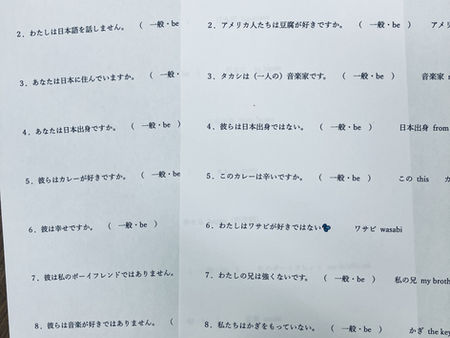 2．わたしは日本語を話しません。 （ 一般・be
3．あなたは日本に住んでいますか。 （ 一般・
4．あなたは日本出身ですか。 （ 一般・be ）
5．彼らはカレーが好きですか。 （ 一般・be
6．彼は幸せですか。 （ 一般・be ）
7．彼は私のボーイフレンドではありません。
8．彼らは音楽が好きではありません。 （
2．アメリカ人たちは豆腐が好きですか。 （ 一般・be ） アメリ
3．タカシは（一人の）音楽家です。 （ 一般・be ） 音楽家
4．彼らは日本出身ではない。 （ 一般・be ） 日本出身 from
5．このカレーは辛いですか。 （ 一般・be ） この this カ
6．わたしはワサビが好きではない ワサビ wasabi
7．わたしの兄は強くないです。 （ 一般・be ） 私の兄 my broth
8．私たちはかぎをもっていない。 （ 一般・be ） かぎ the key